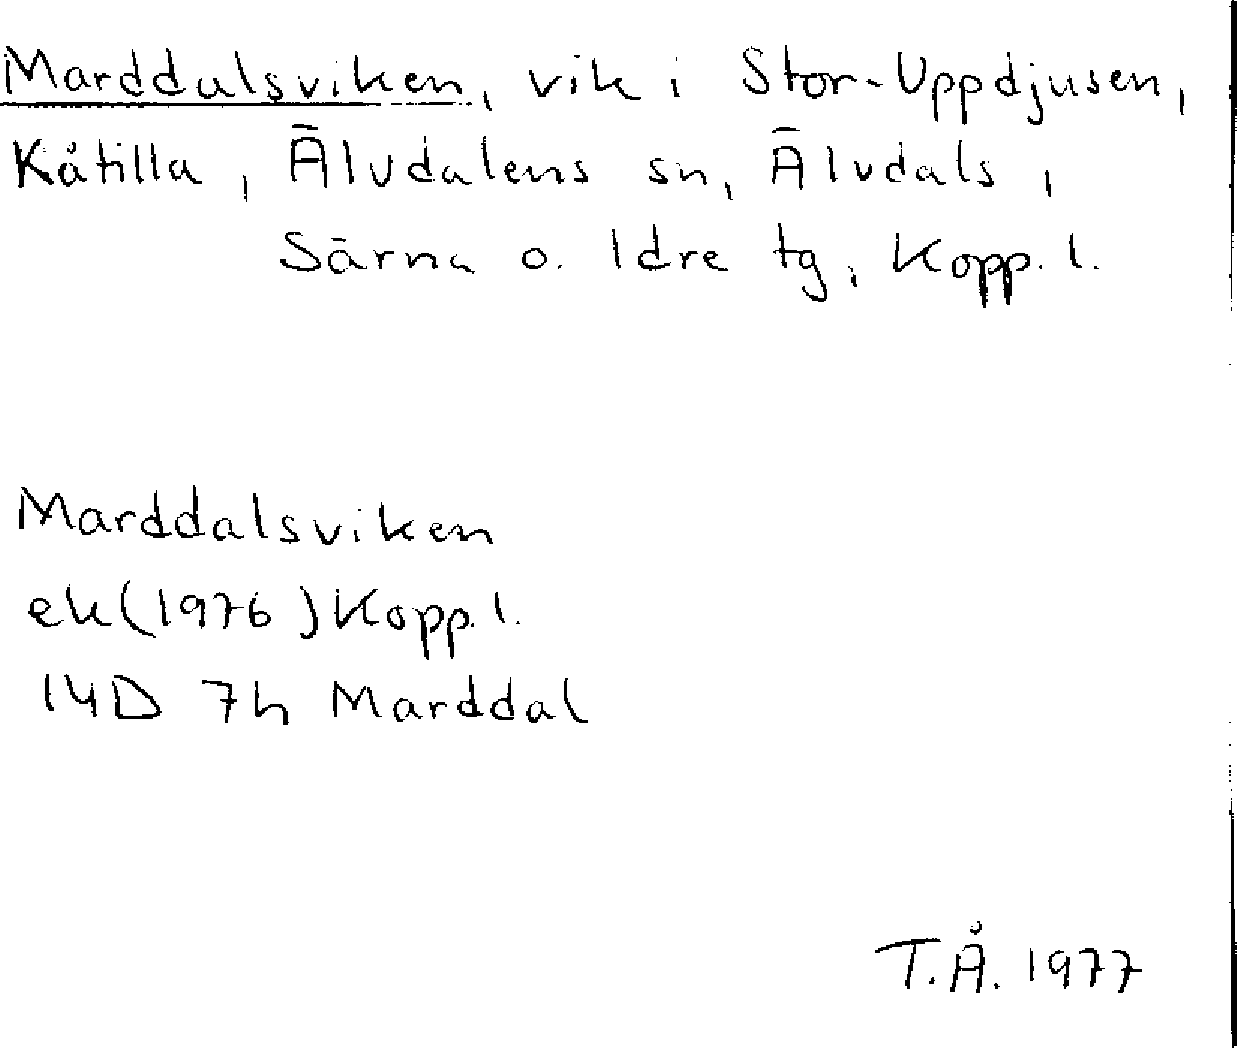 Marddalsviken, vik i Stor-Uppdjusen,
Kåtilla, Älvdalens sn, Älvdals,
Särna o. Idre tg, Kopp. l.
Marddalsviken
ek (1976) Kopp. l.
14D 7h Marddal
T.Å. 1977